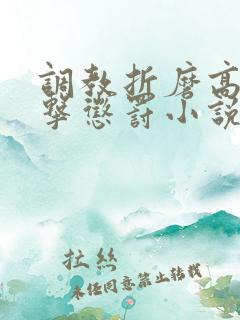 調教折磨高
擊懲罰小說
拉丝
未经同意禁止转载